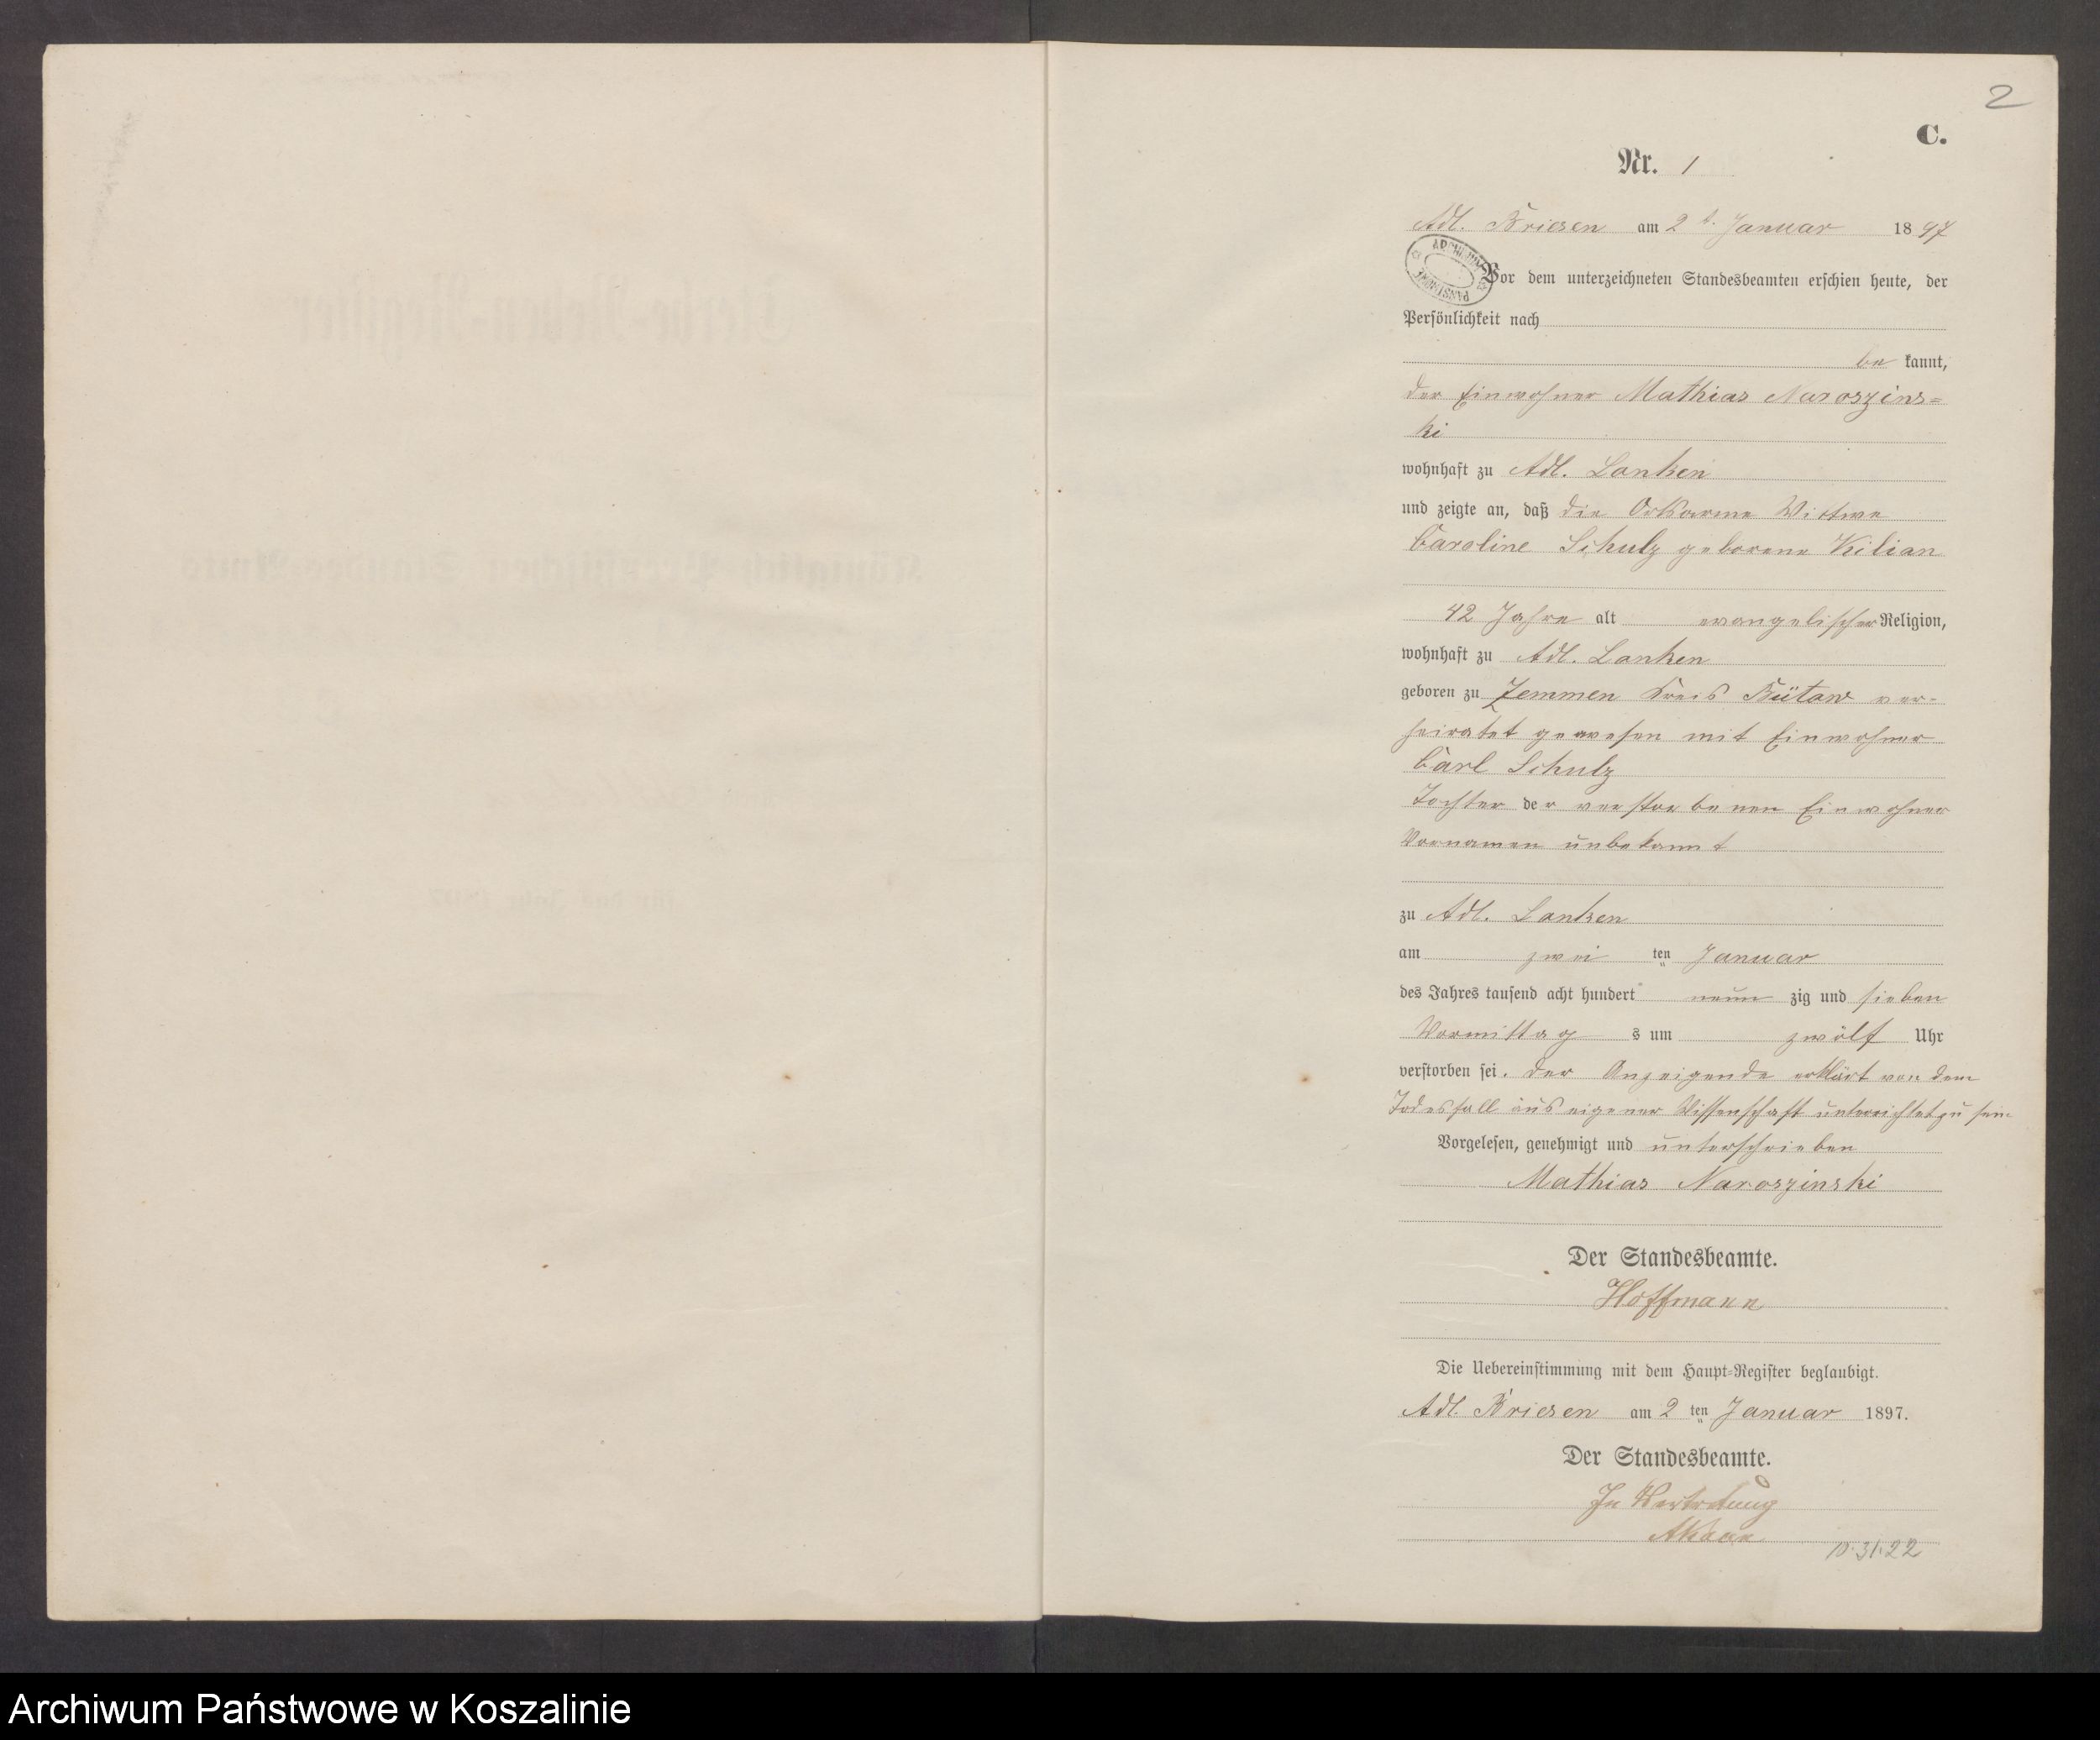 2
C.
Nr. 1
Adl. Briesen am 2 t. Januar 1897
Vor dem unterzeichneten Standesbeamten erschien heute, der
Persönlichkeit nach
be kannt,
der Einwohner Mathias Naroszins=
ki
wohnhaft zu Adl. Lanken
und zeigte an, daß die Ortsarme Wittwe
Caroline Schulz geborene Kilian
42 Jahre alt evangelischer Religion,
wohnhaft zu Adl. Lanken
geboren zu Zemmen Kreis Bütow ver-
heiratet gewesen mit Einwohner
Carl Schulz
Tochter der verstorbenen Einwohner
Vornamen unbekannt
zu Adl. Lanken
am zwei ten Januar
des Jahres tausend acht hundert neun zig und sieben
Vormittag s um zwölf Uhr
verstorben sei. Der Anzeigende erklärt von dem
Todesfall aus eigener Wissenschaft unterrichtet zu sein
Vorgelesen, genehmigt und unterschrieben
Mathias Naroszinski
Der Standesbeamte.
Hoffmann
Die Uebereinstimmung mit dem Haupt-Register beglaubigt.
Adl. Briesen am 2 ten Januar 1897.
Der Standesbeamte.
In Vertretung
10.31.22
Archiwum Państwowe w Koszalinie